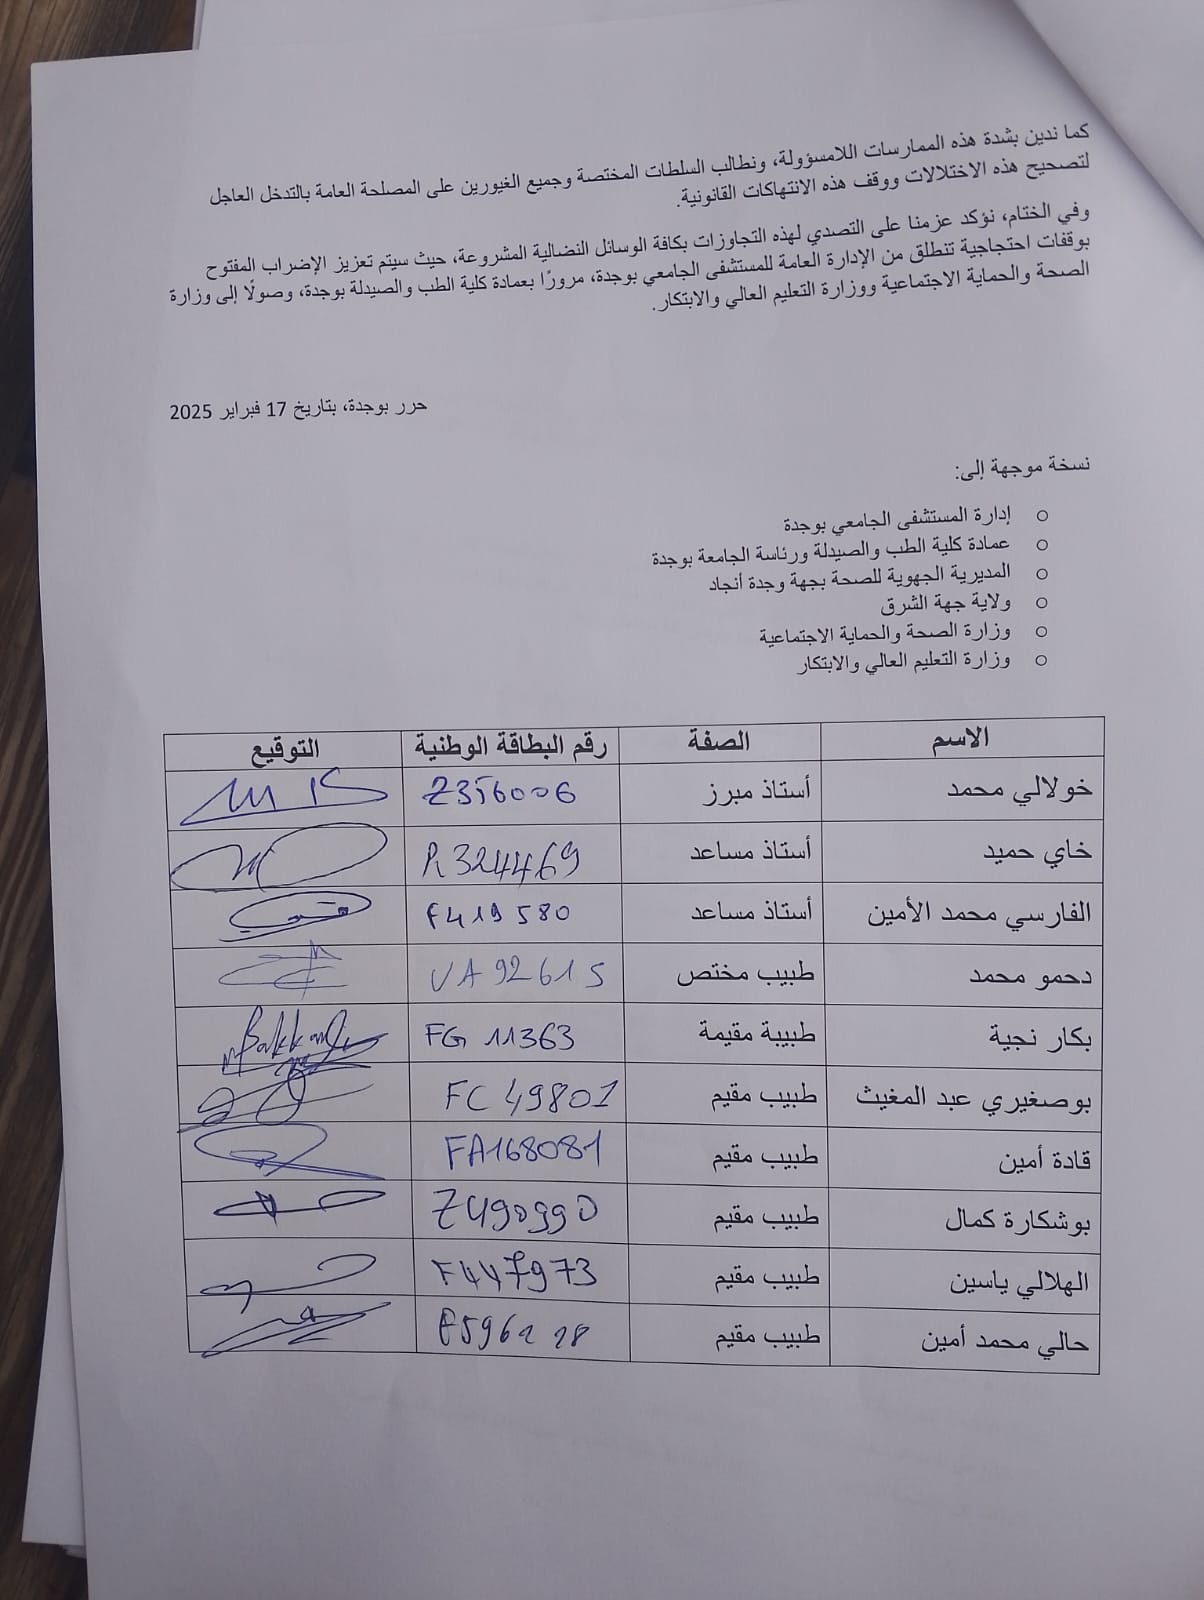 كما ندين بشدة هذه الممارسات اللامسؤولة، ونطالب السلطات المختصة وجميع الغيورين على المصلحة العامة بالتدخل العاجل
لتصحيح هذه الاختلالات ووقف هذه الانتهاكات القانونية.
وفي الختام، نؤكد عزمنا على التصدي لهذه التجاوزات بكافة الوسائل النضالية المشروعة، حيث سيتم تعزيز الإضراب المفتوح
بوقفات احتجاجية تنطلق من الإدارة العامة للمستشفى الجامعي بوجدة، مرورًا بعمادة كلية الطب والصيدلة بوجدة، وصولًا إلى وزارة
الصحة والحماية الاجتماعية ووزارة التعليم العالي والابتكار.
حرر بوجدة، بتاريخ 17 فبراير 2025
نسخة موجهة إلى:
○ إدارة المستشفى الجامعي بوجدة
○ عمادة كلية الطب والصيدلة ورئاسة الجامعة بوجدة
○ المديرية الجهوية للصحة بجهة وجدة أنجاد
○ ولاية جهة الشرق
○ وزارة الصحة والحماية الاجتماعية
○ وزارة التعليم العالي والابتكار
الاسم الصفة رقم البطاقة الوطنية التوقيع
خولالي محمد أستاذ مبرز Z356006
خاي حميد أستاذ مساعد R324469
الفارسي محمد الأمين أستاذ مساعد F419580
دحمو محمد طبيب مختص VA92615
بكار نجية طبيبة مقيمة FG 11363
بوصغيري عبد المغيث طبيب مقيم FC 49801
قادة أمين طبيب مقيم FA168081
بوشكارة كمال طبيب مقيم Z490990
الهلالي ياسين طبيب مقيم F447973
حالي محمد أمين طبيب مقيم